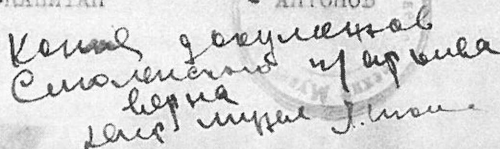 КАПИТАН АНТОНОВ
Копия документов
Смоленского п/архива
верна
музея